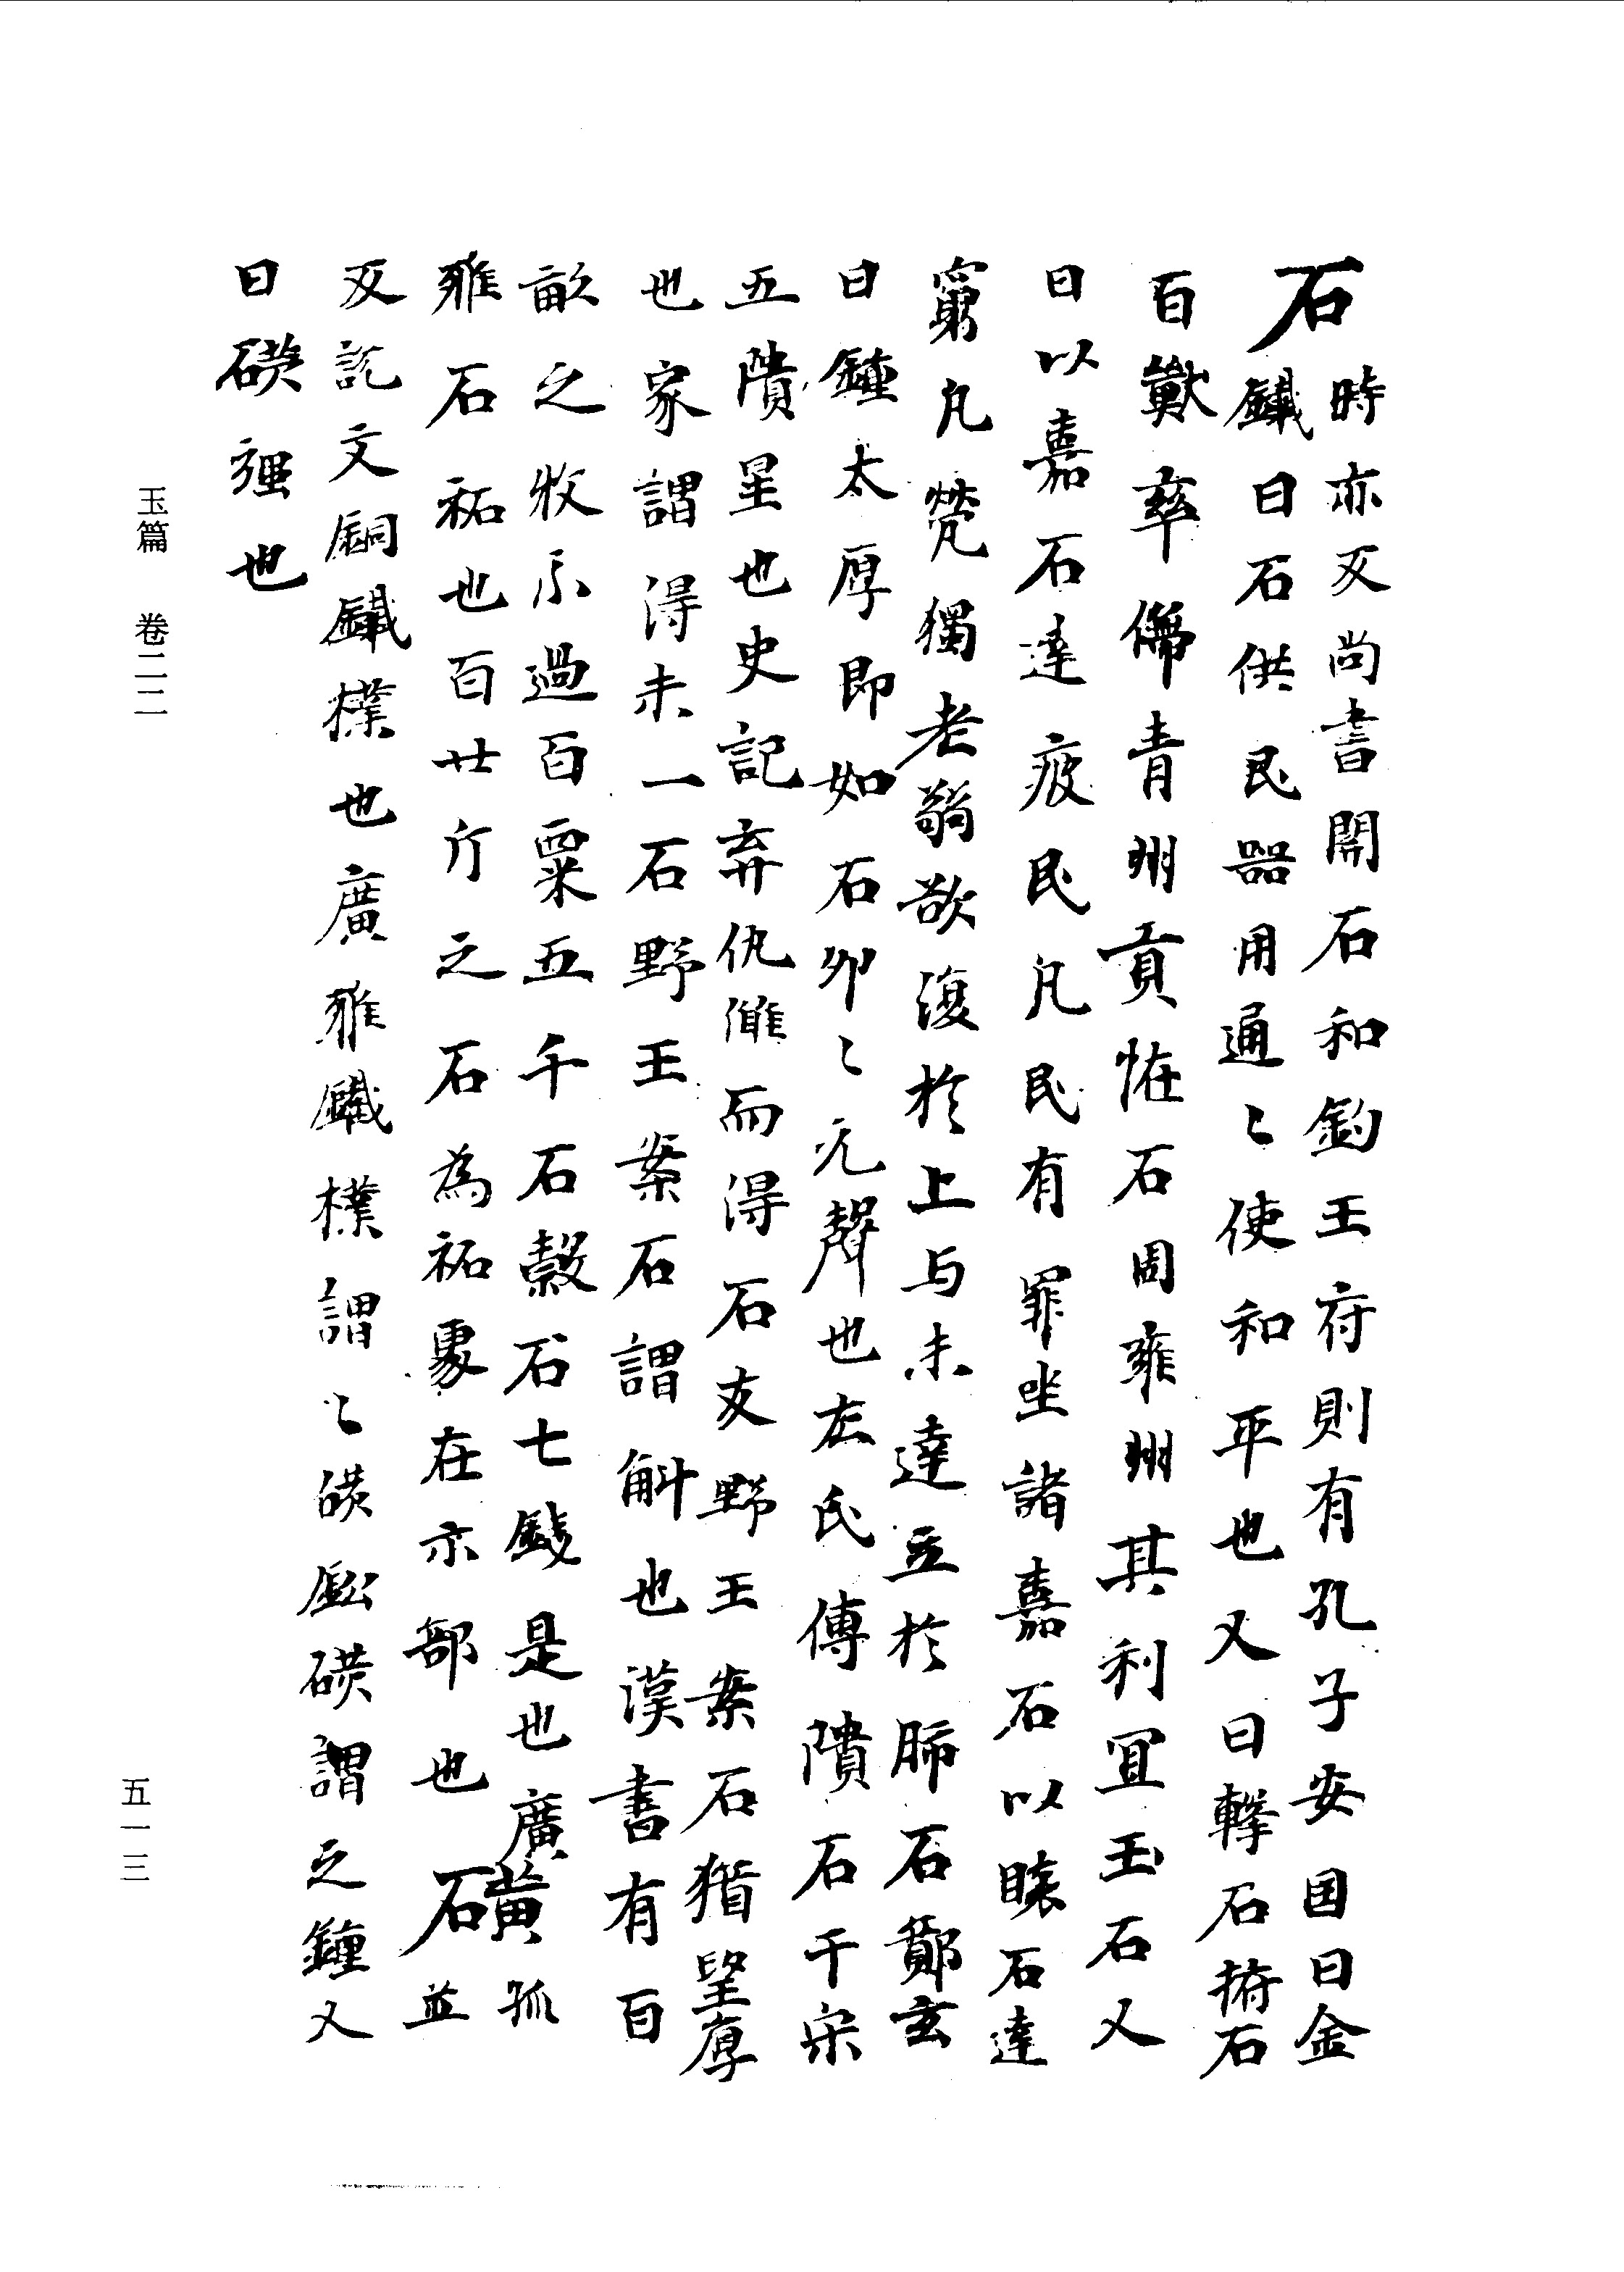 石時亦反尚書開石和釣王府則有孔子安国曰金
鐵曰石供民器用通〻使和平也又曰擊石拊石
百獸率儛青州貢恠石周雍州其利冝玉石又
曰以嘉石達疲民凡民有罪坐諸嘉石以肺石達
窮凡煢獨老㓜欲復於上与未達立於肺石鄭玄
曰鍾太厚即如石卵〻无聲也左氏傳隕石于宋
五隕星也史記弃仇讎而得石友野王案石猶堅厚
也家謂得未一石野王案石謂斛也漢書有百
畝之收不過百粟五千石糓石七錢是也廣
雅石祏也百廿斤之石為祏字在示部也磺孤並
反說文銅鐵樸也廣雅鐵樸謂〻磺鈆磺謂之鍾又
曰磺强也
玉篇 卷二二
五一三